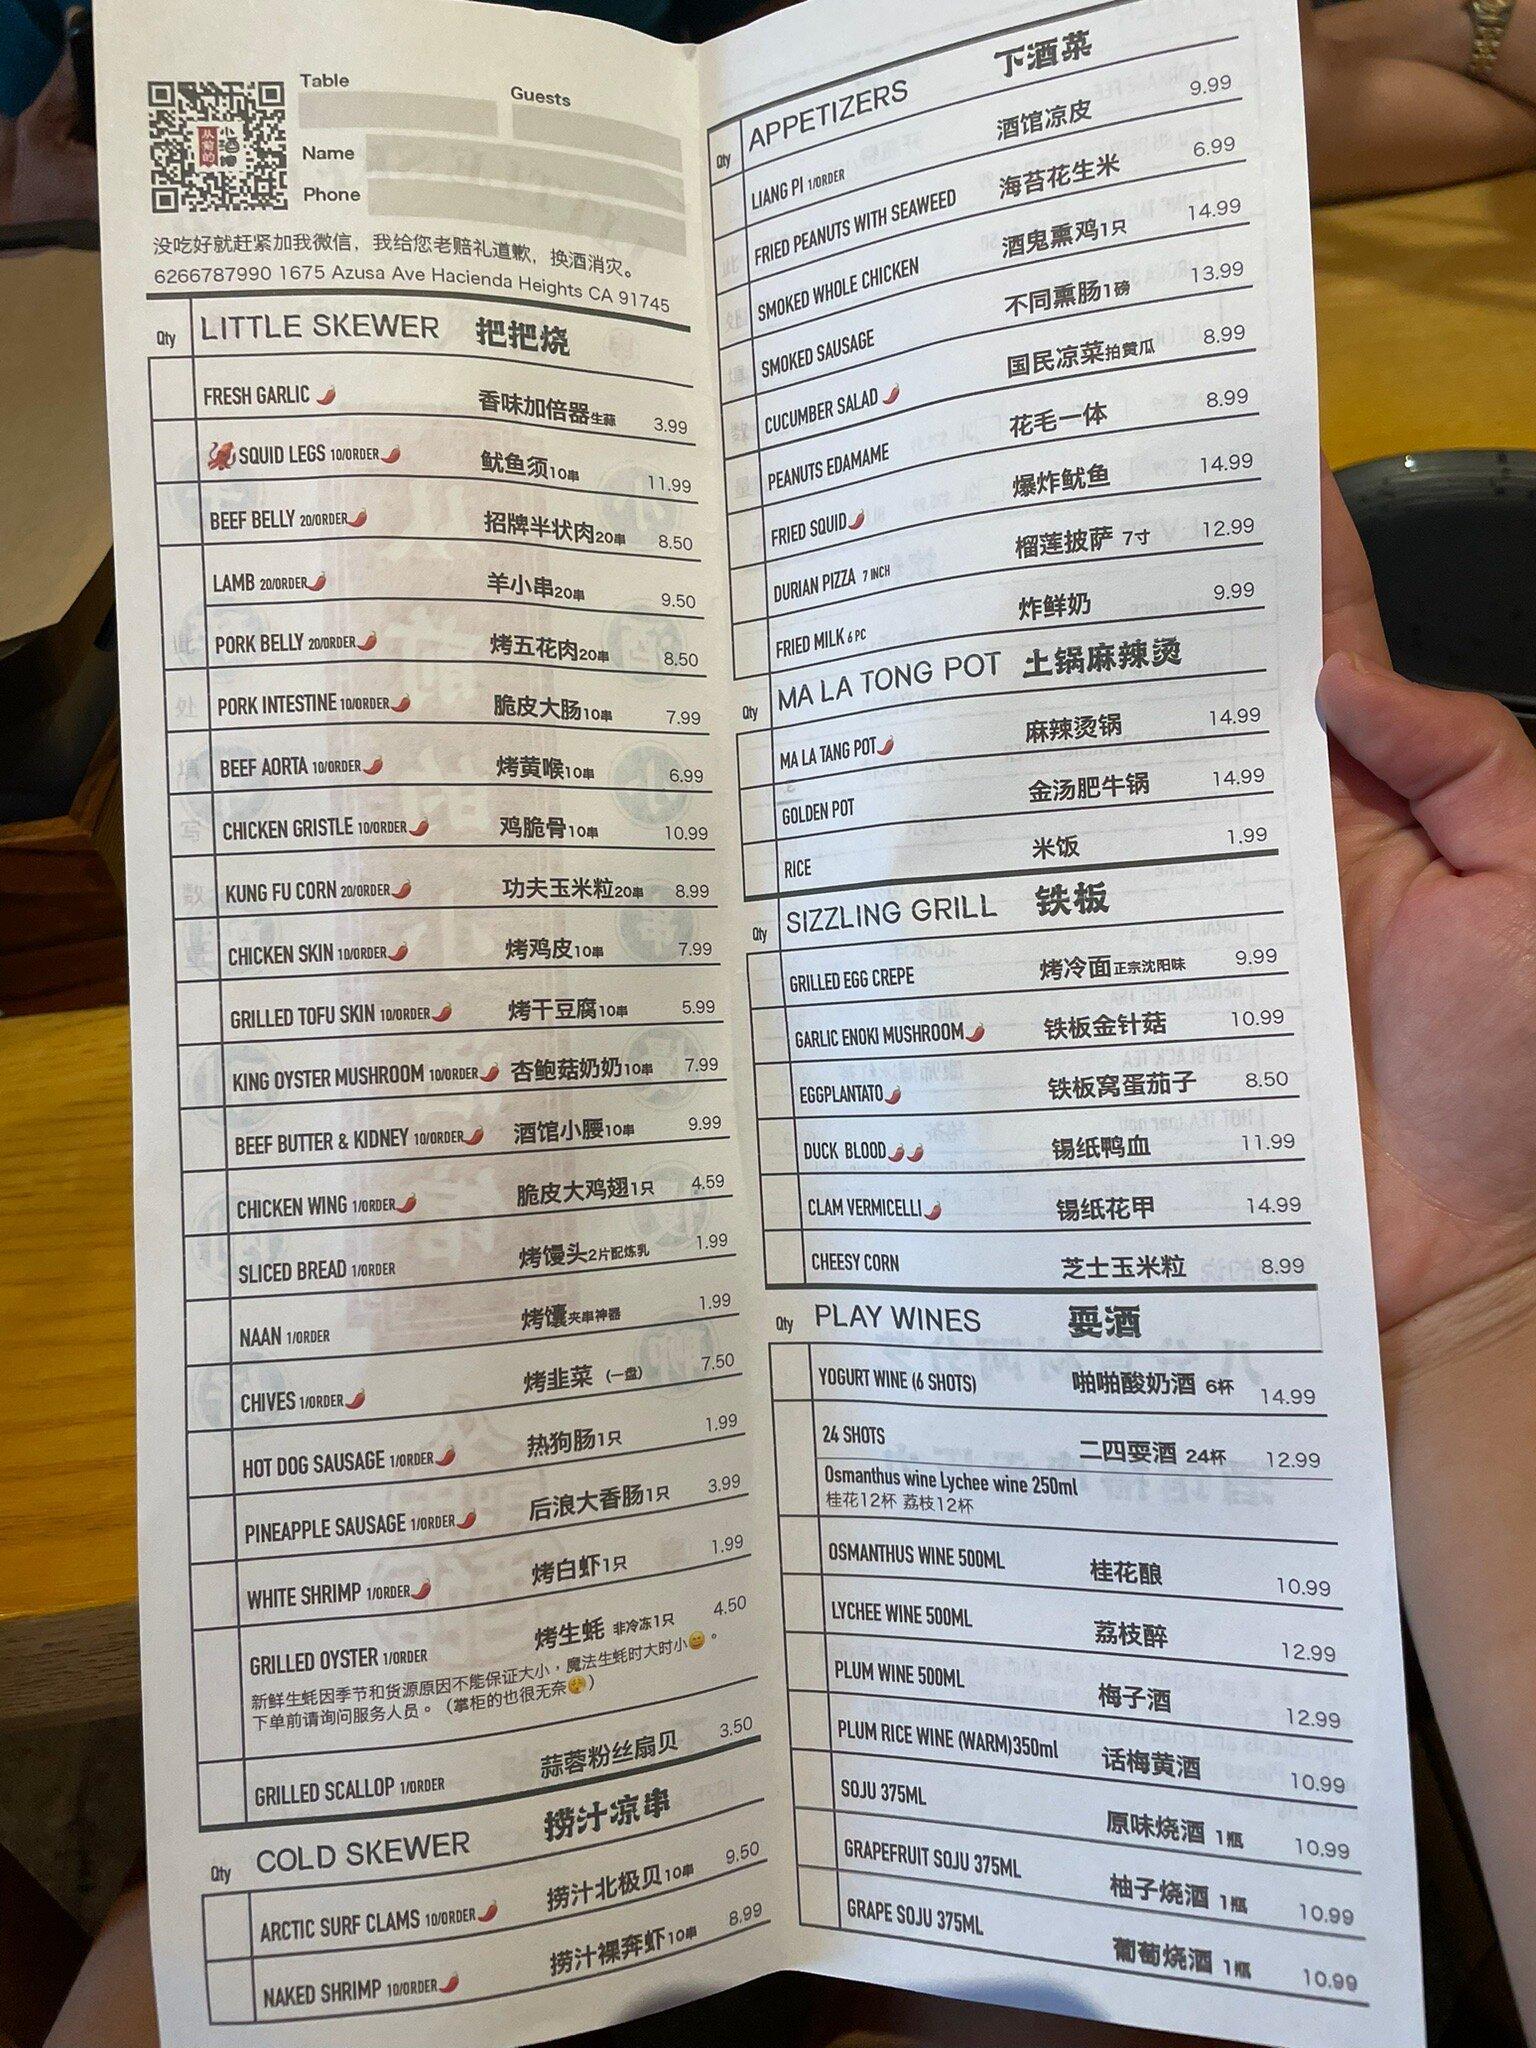 Table
Guests
Name
Phone
从前的
小酒馆
没吃好就赶紧加我微信，我给您老赔礼道歉，换酒消灾。
6266787990 1675 Azusa Ave Hacienda Heights CA 91745
Qty LITTLE SKEWER 把把烧
FRESH GARLIC 🌶 香味加倍器生蒜 3.99
🦑 SQUID LEGS 10/ORDER🌶 鱿鱼须10串 11.99
BEEF BELLY 20/ORDER🌶 招牌半状肉20串 8.50
LAMB 20/ORDER🌶 羊小串20串 9.50
PORK BELLY 20/ORDER🌶 烤五花肉20串 8.50
PORK INTESTINE 10/ORDER🌶 脆皮大肠10串 7.99
BEEF AORTA 10/ORDER🌶 烤黄喉10串 6.99
CHICKEN GRISTLE 10/ORDER🌶 鸡脆骨10串 10.99
KUNG FU CORN 20/ORDER🌶 功夫玉米粒20串 8.99
CHICKEN SKIN 10/ORDER🌶 烤鸡皮10串 7.99
GRILLED TOFU SKIN 10/ORDER🌶 烤干豆腐10串 5.99
KING OYSTER MUSHROOM 10/ORDER🌶 杏鲍菇奶奶10串 7.99
BEEF BUTTER & KIDNEY 10/ORDER🌶 酒馆小腰10串 9.99
CHICKEN WING 1/ORDER🌶 脆皮大鸡翅1只 4.59
SLICED BREAD 1/ORDER 烤馒头2片配炼乳 1.99
NAAN 1/ORDER 烤馕夹串神器 1.99
CHIVES 1/ORDER🌶 烤韭菜（一盘） 7.50
HOT DOG SAUSAGE 1/ORDER🌶 热狗肠1只 1.99
PINEAPPLE SAUSAGE 1/ORDER🌶 后浪大香肠1只 3.99
WHITE SHRIMP 1/ORDER🌶 烤白虾1只 1.99
GRILLED OYSTER 1/ORDER 烤生蚝 非冷冻1只 4.50
新鲜生蚝因季节和货源原因不能保证大小，魔法生蚝时大时小😄。
下单前请询问服务人员。（掌柜的也很无奈😌）
GRILLED SCALLOP 1/ORDER 蒜蓉粉丝扇贝 3.50
Qty COLD SKEWER 捞汁凉串
ARCTIC SURF CLAMS 10/ORDER🌶 捞汁北极贝10串 9.50
NAKED SHRIMP 10/ORDER🌶 捞汁裸奔虾10串 8.99
Qty APPETIZERS 下酒菜
LIANG PI 1/ORDER 酒馆凉皮 9.99
FRIED PEANUTS WITH SEAWEED 海苔花生米 6.99
SMOKED WHOLE CHICKEN 酒鬼熏鸡1只 14.99
SMOKED SAUSAGE 不同熏肠1磅 13.99
CUCUMBER SALAD🌶 国民凉菜拍黄瓜 8.99
PEANUTS EDAMAME 花毛一体 8.99
FRIED SQUID🌶 爆炸鱿鱼 14.99
DURIAN PIZZA 7 INCH 榴莲披萨 7寸 12.99
FRIED MILK 6 PC 炸鲜奶 9.99
Qty MA LA TONG POT 土锅麻辣烫
MA LA TANG POT🌶 麻辣烫锅 14.99
GOLDEN POT 金汤肥牛锅 14.99
RICE 米饭 1.99
Qty SIZZLING GRILL 铁板
GRILLED EGG CREPE 烤冷面正宗沈阳味 9.99
GARLIC ENOKI MUSHROOM🌶 铁板金针菇 10.99
EGGPLANTATO🌶 铁板窝蛋茄子 8.50
DUCK BLOOD🌶🌶 锡纸鸭血 11.99
CLAM VERMICELLI🌶 锡纸花甲 14.99
CHEESY CORN 芝士玉米粒 8.99
Qty PLAY WINES 耍酒
YOGURT WINE (6 SHOTS) 啪啪酸奶酒 6杯 14.99
24 SHOTS 二四耍酒 24杯 12.99
Osmanthus wine Lychee wine 250ml
桂花12杯 荔枝12杯
OSMANTHUS WINE 500ML 桂花酿 10.99
LYCHEE WINE 500ML 荔枝醉 12.99
PLUM WINE 500ML 梅子酒 12.99
PLUM RICE WINE (WARM)350ml 话梅黄酒 10.99
SOJU 375ML 原味烧酒 1瓶 10.99
GRAPEFRUIT SOJU 375ML 柚子烧酒 1瓶 10.99
GRAPE SOJU 375ML 葡萄烧酒 1瓶 10.99